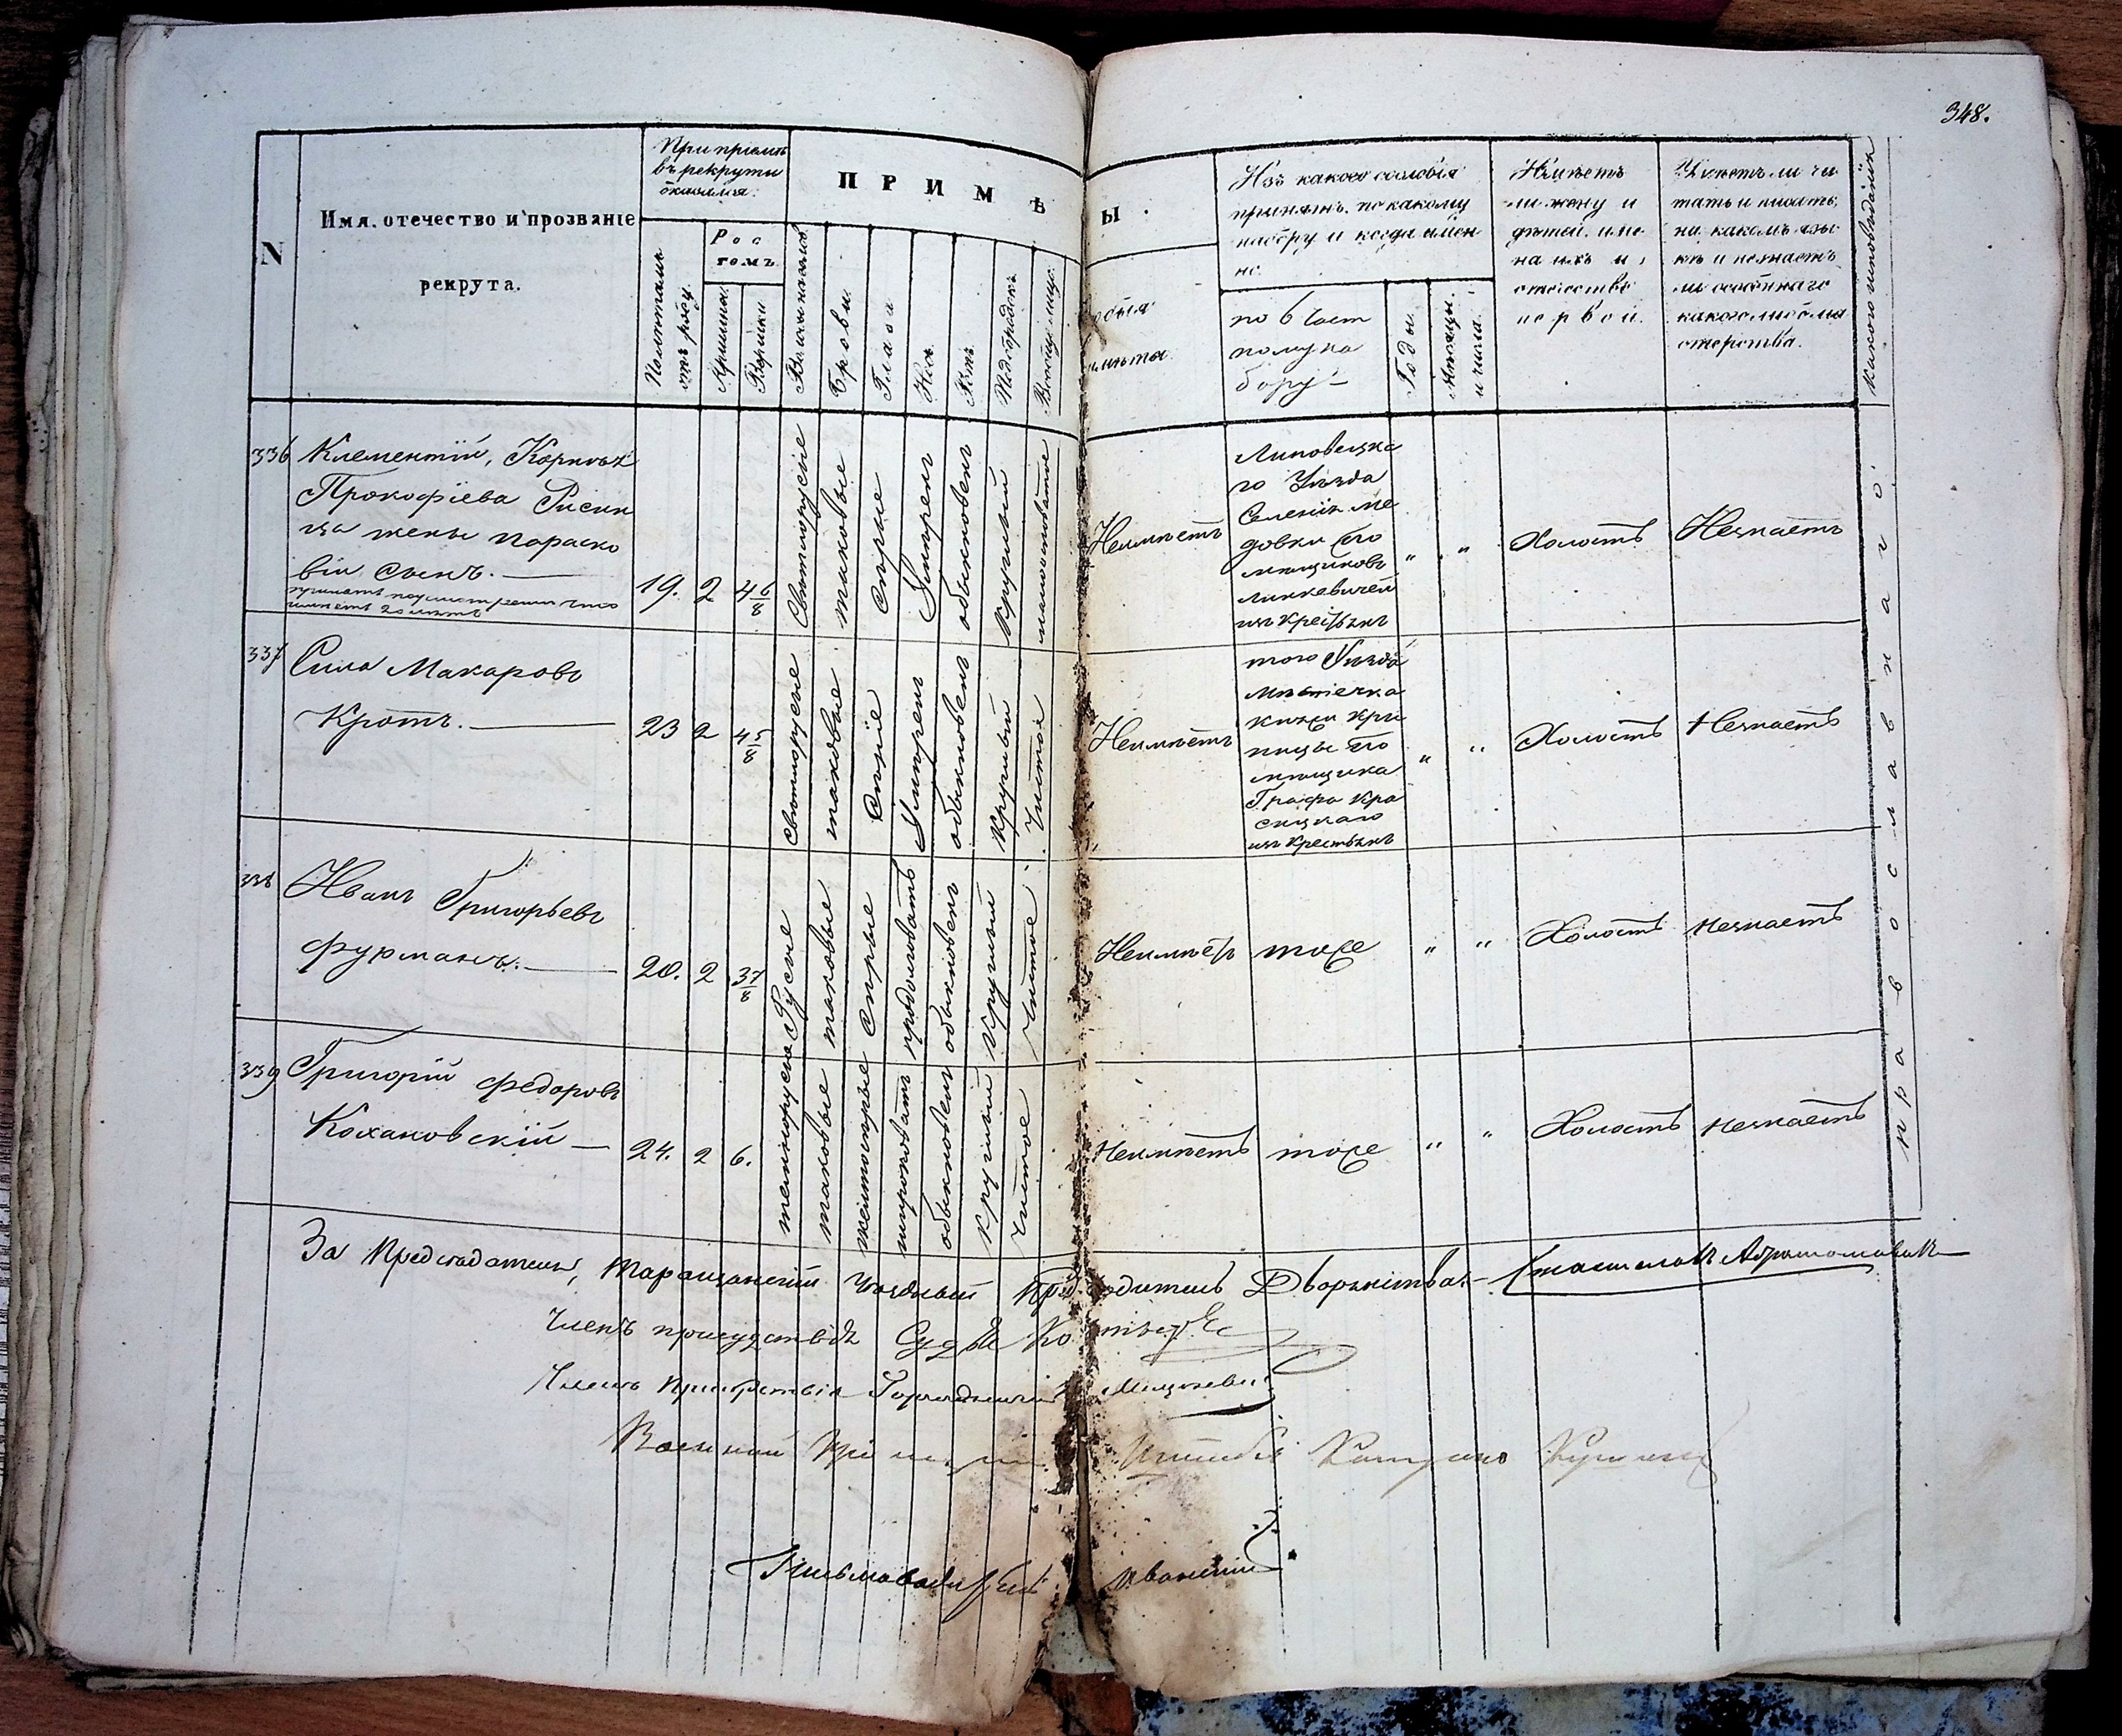 348.
N
Имя, отечество и прозваніе
рекрута.
При пріемѣ
въ рекруты
оказался:
Полѣтамъ
отъ роду
Рос
томъ
Аршины
Вершки
ПРИМѢ
ТЫ.
Волосы на головѣ
Брови.
Глаза
Носъ
Ротъ
Подбородокъ
Вообще лице.
Особыя
примѣты
Изъ какого сословія
принятъ, по какому
набору и когда имен
но.
по 6 част
ному на
бору
Годы.
Мѣсяцы
и числа.
Имѣетъ
ли жену и
дѣтей, име
на ихъ и
отчество
первой.
Умѣетъ ли чи
тать и писать,
на какомъ язы
кѣ и незнаетъ
ли особеннаго
какого либо ма
стерства.
Какого исповѣданія
336
Клементій, Корнѣя
Прокофіева
жены Параско
віи сынъ.
19.
2
4 6/8
Свѣтлорусые
таковые
Сѣрые
Умѣренъ
обыкновенъ
Круглый
Неимѣетъ
Липовецка
го Уѣзда
Селенія Ме
довки по
мѣщиковъ
изъ Крестьянъ
"
"
Холостъ
Незнаетъ
337
Сила Макаровъ
Кротъ.
23
2
4 5/8
свѣтлорусые
таковые
Сѣріе
Умѣренъ
обыкновенъ
Круглый
Чистое
Неимѣетъ
того Уѣзда
Мѣстечка
княжи Кри
ницы по
мѣщика
Графа Кра
сицкаго
изъ Крестьянъ
"
"
Холостъ
Незнаетъ
338
Иванъ Григорьевъ
Фурманъ.
20.
2
3 7/8
Русые
таковые
Сѣрые
продолговатъ
обыкновенъ
Круглый
Чистое
Неимѣетъ
тоже
"
"
Холостъ
Незнаетъ
339
Григорій Федоровъ
Кохановскій
24.
2
6.
темнорусые
таковые
желтосѣрые
широковатъ
обыкновенъ
Круглый
Чистое
Неимѣетъ
тоже
"
"
Холостъ
Незнаетъ
православнаго.
За Предсѣдателя, Таращанскій Уѣздный Предводитель Дворянства
Членъ присудствія Судья
Членъ Присутствія Городничій
Военный Пріемщикъ Штабсъ Капитанъ
Письмоводитель